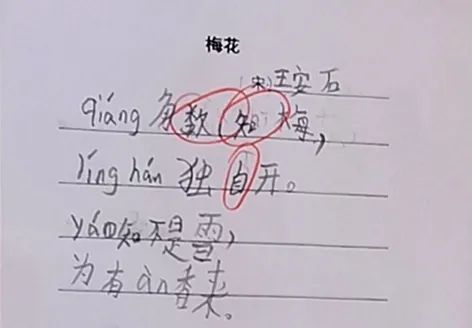 梅花
(宋)王安石
qiáng条数知梅,
líng hán 独自开。
yáo知不是雪,
为有àn香来。